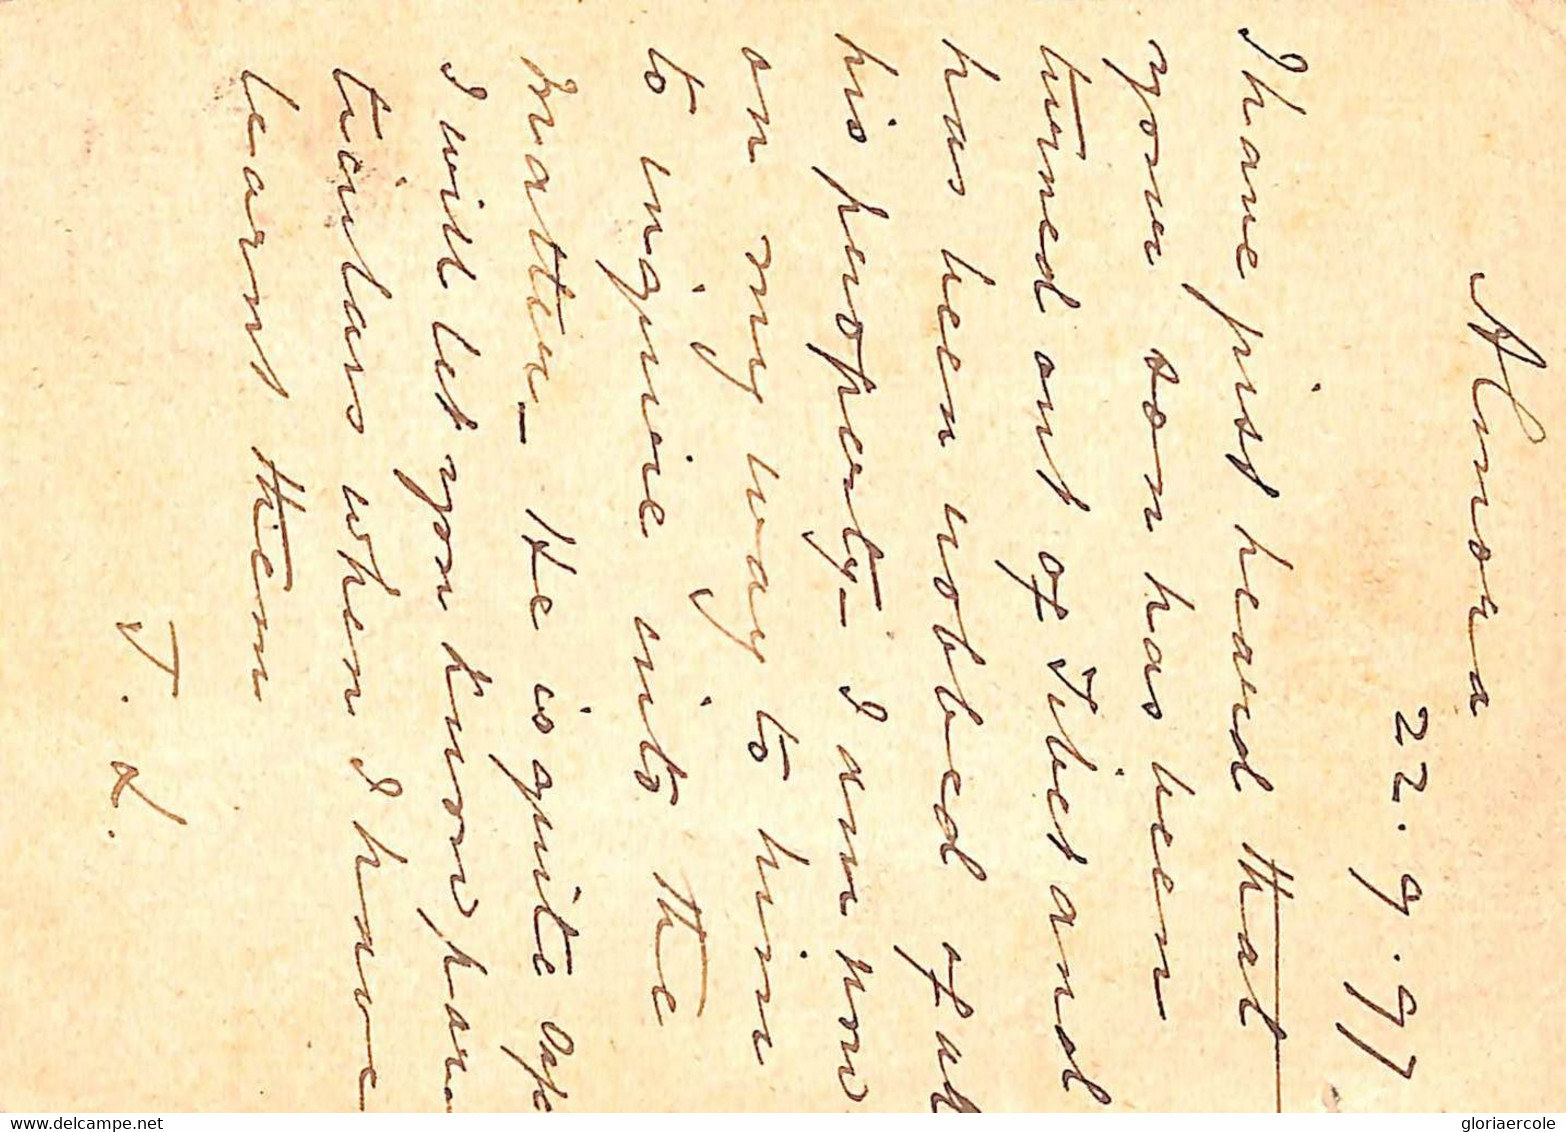 Almora
22.9.97
I have just heard that
your son has been
turned out of Tibet and
has been robbed of all
his property - I am now
on my way to him
to inquire into the
matter - He is quite safe
I will let you know par
ticulars when I have
learnt them
J. L.
www.delcampe.net
gloriaercole